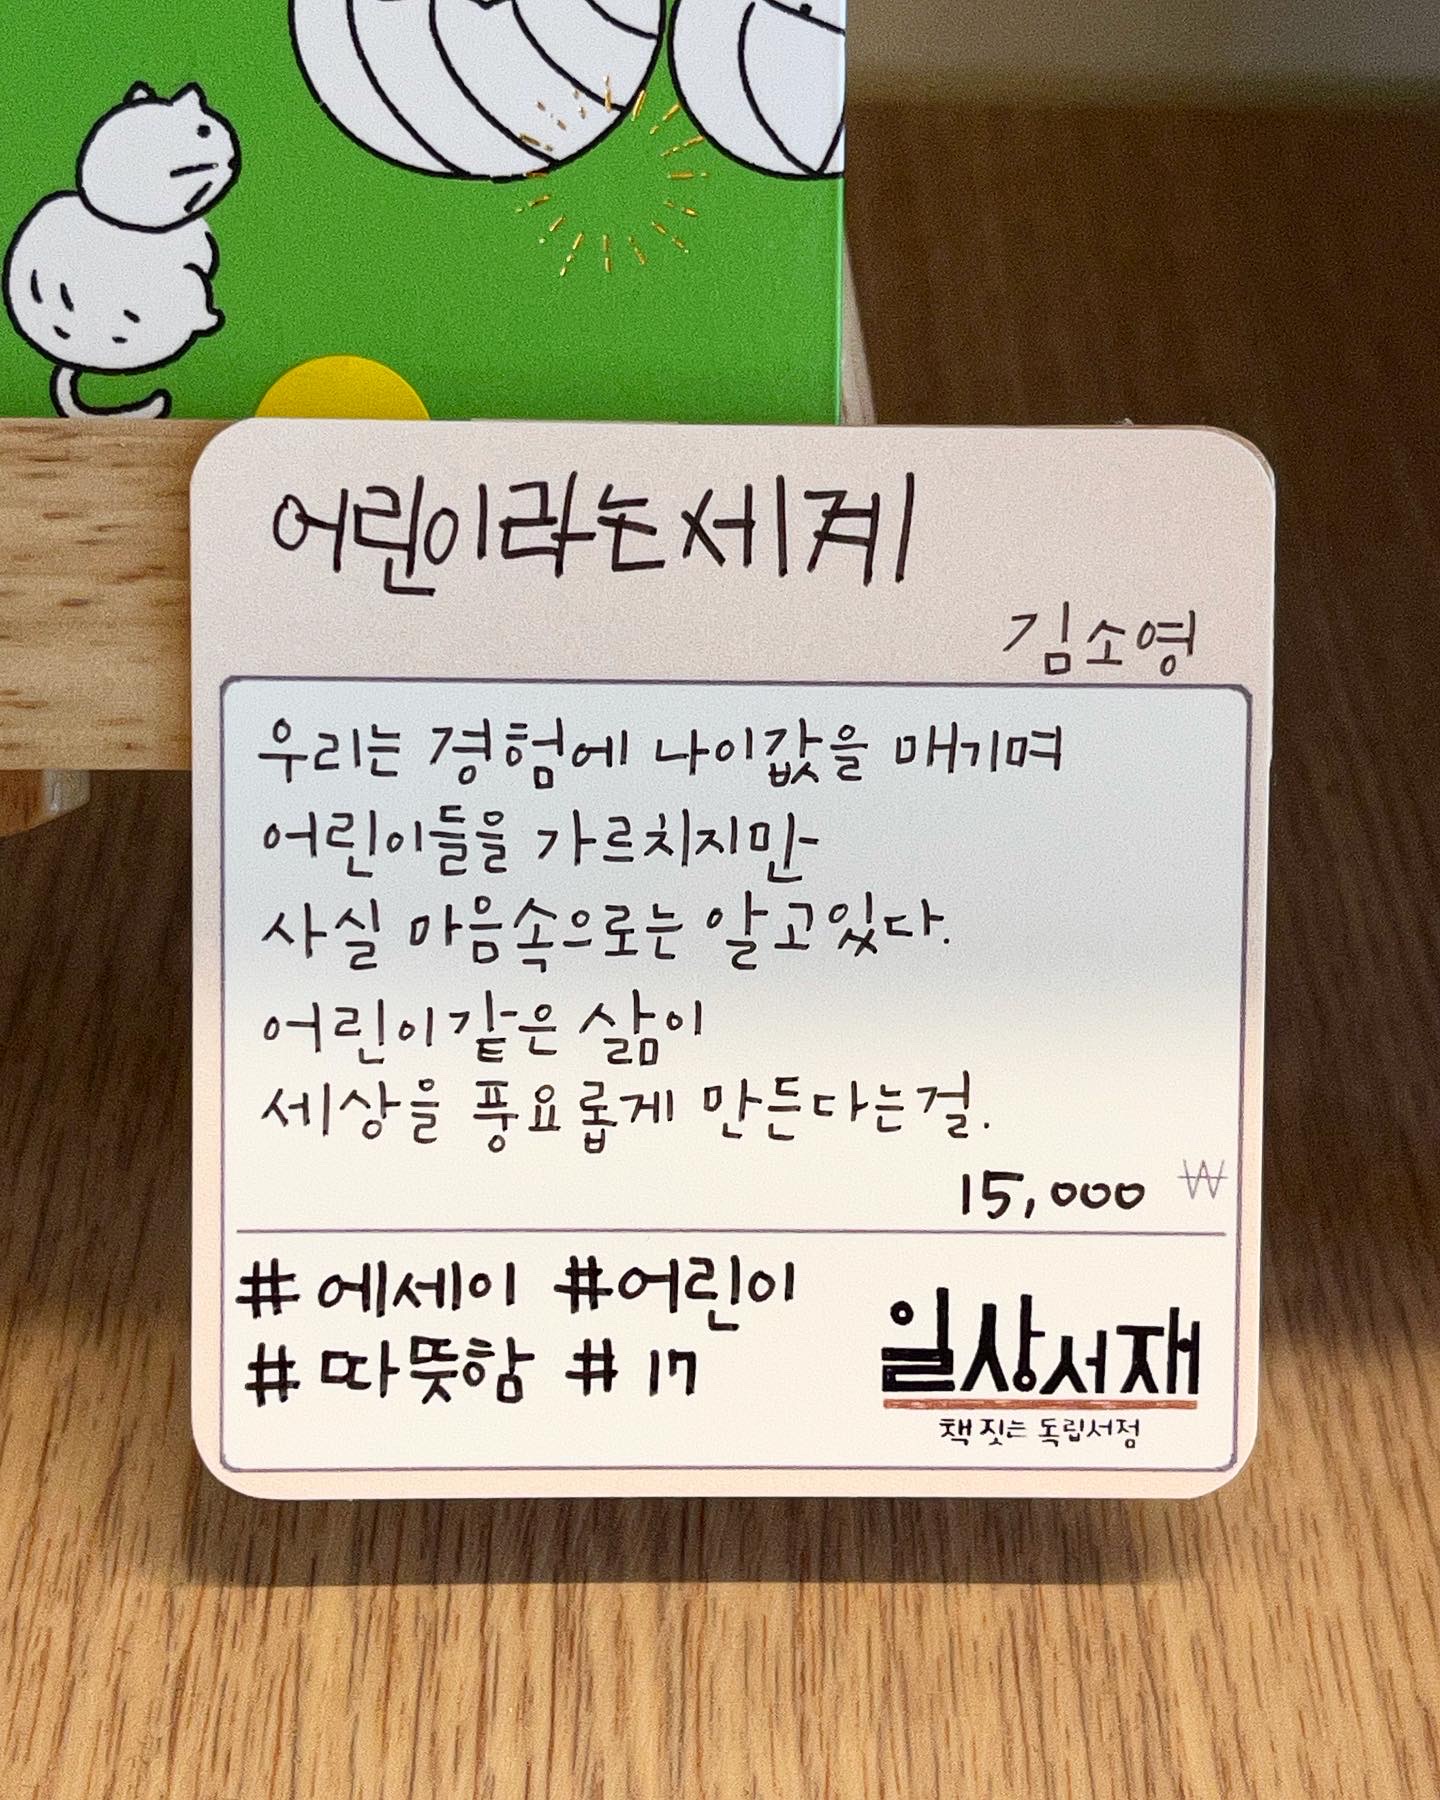 어린이라는세계
김소영
우리는 경험에 나이값을 매기며
어린이들을 가르치지만
사실 마음속으로는 알고있다.
어린이같은 삶이
세상을 풍요롭게 만든다는걸.
15,000 ₩
# 에세이 #어린이
# 따뜻함 # 17
일상서재
책 짓는 독립서점